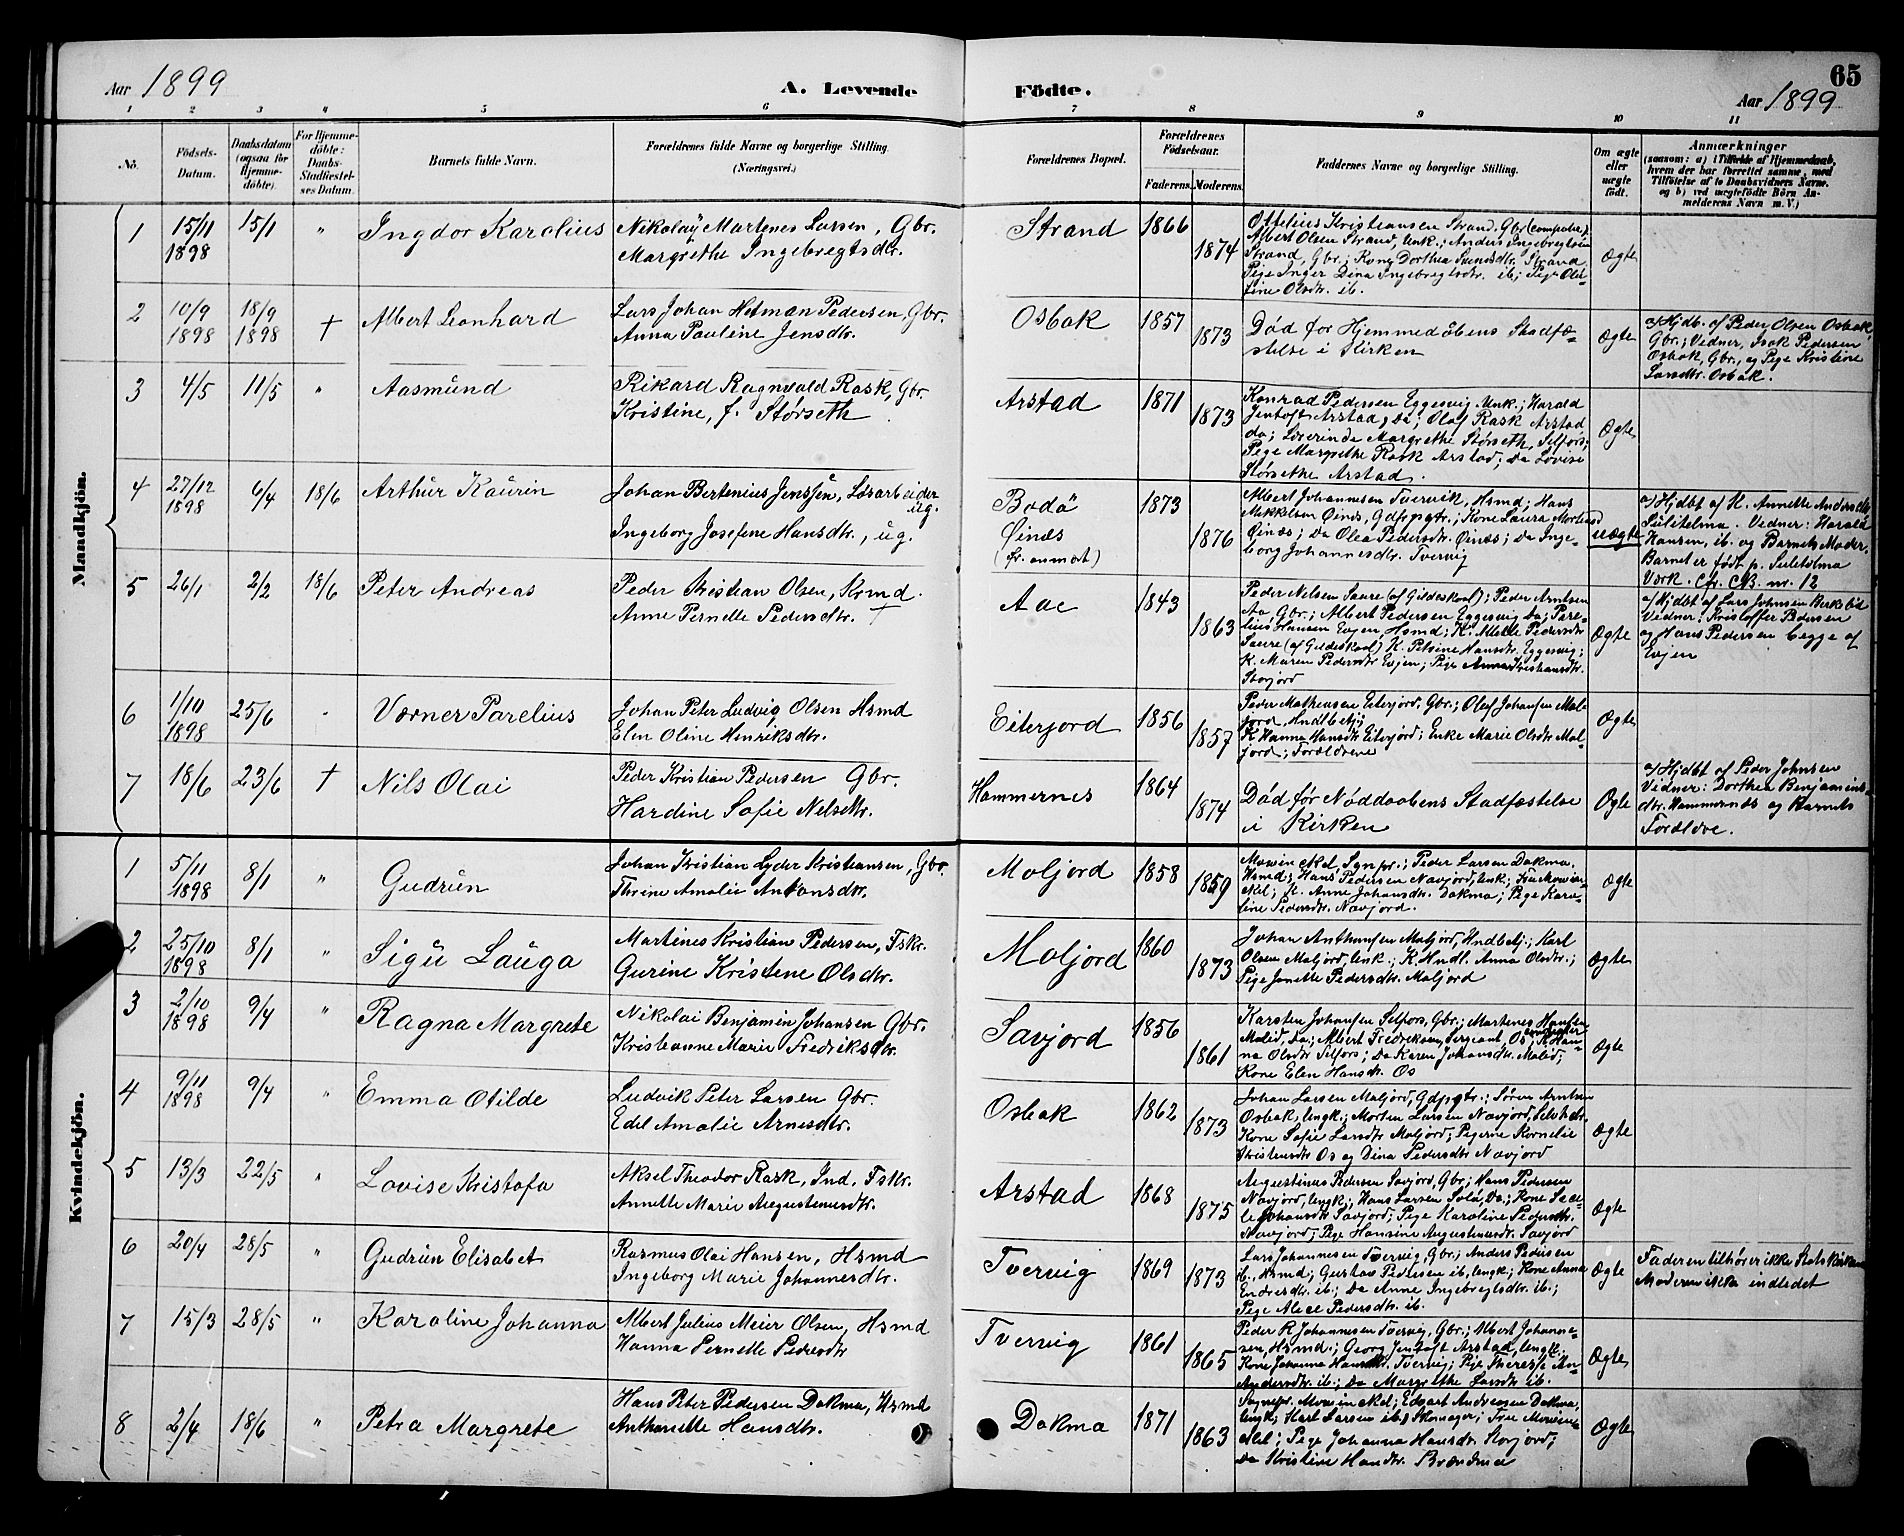 Aar 1899 A. Levende Födte. Aar 1899 65
1 2 3 4 5 6 7 8 9 10 11
No. Födsels-Datum. Daabsdatum (ogsaa for Hjemmedöbte). For Hjemmedöbte: Daabs-Stadfæstelses Datum. Barnets fulde Navn. Forældrenes fulde Navne og borgerlige Stilling. (Næringsvei.) Forældrenes Bopæl. Forældrenes Födselsaar. Faderens. Moderens. Faddernes Navne og borgerlige Stilling. Om ægte eller uægte födt. Anmærkninger (saasom: a) i Tilfælde af Hjemmedaab, hvem der har forrettet samme, med Tilföielse af to Daabsvidners Navne, og b) ved uægtefödte Börn Anmelderens Navn m. V.)
Mandkjön.
1 15/11 1898 15/1 " Ingdor Karolius Nikolaÿ Martenes Larsen, Gbr.
Margrethe Ingebregtsdtr.
Strand 1866 1874
Ottelius Kristiansen Strand, Gbr.
Albert Olsen Strand, Unk.; Anders Ingebregtsen
Strand, Gbr.; Kone Dorthea Svendsdtr. Strand,
Pige Inger Dina Ingebregtsdtr. ib.; Pige Oletine Olsdtr. ib.
Ægte
2 10/9 1898 18/9 1898 † Albert Leonhard Lars Johan Hetman Pedersen, Gbr.
Anna Pauline Jensdtr.
Osbak 1857 1873
Død før Hjemmedøbens Stadfæ-
stelse i Kirken
Ægte
a/ Hjdb. af Peder Olsen Osbak,
Gbr.; Vidner, Isak Pedersen
Osbak, Gbr., og Pige Kristine
Larsdtr. Osbak.
3 4/5 11/5 " Aasmund Rikard Ragnvald Rask, Gbr.
Kristine, f. Størseth
Arstad 1871 1873
Konrad Pedersen Eggesvig Unk.; Harald
Jentoft Arstad, Do; Olaf Rask Arstad
do; Lærerinde Margrethe Størseth, Selfors;
Pige Margrethe Rask Arstad; Do Lovise
Størsethe Arstad.
Ægte
4 27/12 1898 6/4 18/6 Arthur Kaurin Johan Bertenius Jenssen, Løsarbeider
ug.
Ingeborg Josefine Hansdtr., ug.
Bodø
Øinæs
1873 1876
Albert Johannesen Tvervik, Hsmd; Hans
Mikkelsen Øinæs, Gdfpgtr.; Kone Laura
Øinæs; Do Olea Pedersdtr. Øinæs; Do Inge-
borg Johannesdtr. Tvervig
uægte
a/ Hjdbt af K. Annette Andersdtr
Sulitelma. Vidner: Harald
Hansen, ib. og Barnets Moder.
Barnet er født p. Sulitelma
Værk. Cfr. CB. nr. 12
5 26/1 2/2 18/6 Peter Andreas Peder Kristian Olsen, Krmd.
Anne Pernelle Pedersdtr. †
Aae 1843 1863
Peder Nelsen Saure (af Gildeskaal); Peder Arntsen
Aa Gbr.; Albert Pedersen Eggesvig Do; Pare-
lius Hansen Evjen, Hsmd; K. Pedersdtr.
Saure (af Gildeskaal) K. Petrine Hansdtr. Eggesvig;
K. Maren Pedersdtr Evjen; Pige Anna Kristiansdtr.
Storjord
Ægte
a/ Hjdbt af Lars Johnsen
Vidner: Kristoffer Pedersen
og Hans Pedersen begge af
Evjen
6 1/10 1898 25/6 " Værner Parelius Johan Peter Ludvig Olsen Hsmd
Elen Oline Henriksdtr.
Eiterjord 1856 1857
Peder Matheusen Eiterjord, Gbr.; Oluf Johansen Mol-
jord, Hndlbetj;
K Hanna Hansdtr Eiterjord; Enke Marie Olsdtr Mol-
jord; Forældrene
Ægte
7 18/6 23/6 † Nils Olai Peder Kristian Pedersen Gbr.
Hardine Sofie Nelsdtr.
Hammernes 1864 1874
Død før Nøddaabens Stadfæstelse
i Kirken
Ægte
a/ Hjdbt af Peder Johnsen
Vidner: Dorthea Benjamins-
dtr. Hammernæs og Barnets
Forældre.
Kvindekjön.
1 5/11 1898 8/1 " Gudrun Johan Kristian Lyder Kristiansen, Gbr.
Thrine Amalie Antonsdtr.
Moljord 1858 1859
Mowin kel, Sgnpr.; Peder Larsen Dokma,
Hsmd; Hans Pedersen Navjord, Unk; Fru Mowin-
ckel; K. Anne Johansdtr. Dokma; Pige Karo-
line Pedersdtr. Navjord.
Ægte
2 25/10 1898 8/1 " Sigu Lauga Martines Kristian Pedersen, Fskr.
Gurine Kristene Olsdtr.
Moljord 1860 1873
Johan Anthonsen Moljord, Hndlbetj.; Karl
Olsen Moljord, Unk.; K. Hndl. Anna Olsdtr.;
Pige Janette Pedersdtr. Moljord
Ægte
3 2/10 1898 9/4 " Ragna Margrete Nikolai Benjamin Johansen Gbr.
Kristianne Marie Fredriksdtr.
Savjord 1856 1861
Karsten Johansen Selfors, Gbr.; Martenes Hansen
Molid, Do; Albert Fredriksen, Sergeant, Os; K. Han-
na Olsdtr Selfors; Do Karen Johansdtr. Molid;
Kone Elen Hansdtr. Os
Ægte
4 9/11 1898 9/4 " Emma Otilde Ludvik Peter Larsen Gbr.
Edel Amalie Arnesdtr.
Osbak 1862 1873
Johan Larsen Moljord, Gdfpgtr.; Søren Arntsen
Osbak, Ungk.; Morten Larsen Navjord,
Kone Sofie Larsdtr Moljord; Pigerne Kornelie
Kristensdtr Os og Dina Pedersdtr Navjord
Ægte
5 13/3 22/5 " Lovise Kristofa Aksel Theodor Rask, Ind. Fskr.
Annette Marie Augustinusdtr.
Arstad 1868 1875
Augustinus Pedersen Savjord, Gbr.; Hans Pedersen
Navjord, Ungk; Hans Larsen Sola, Do.; Kone
Johansdtr Savjord; Pige Karoline Pedersdtr.
Navjord; Pige Hansine Augustinusdtr. Savjord
Ægte
6 20/4 28/5 " Gudrun Elisabet Rasmus Olai Hansen, Hsmd
Ingeborg Marie Johannesdtr.
Tvervig 1869 1873
Lars Johannesen Tvervig, Gbr.; Anders Pedersen
ib., Hsmd; Gustav Pedersen ib, Ungk; Kone Anna
Endresdtr. ib.; Do Anne Ingebregtsdtr. ib.;
Pige Alice Pedersdtr. ib.
Ægte
Faderen tilhører ikke Statskirken
Moderen ikke indledet
7 15/3 28/5 " Karoline Johanna Albert Julius Meier Olsen, Hsmd
Hanna Pernelle Pedersdtr
Tvervig 1861 1865
Peder R Johannesen Tvervig, Gbr.; Albert Johanne-
sen, Hsmd.; Georg Jentoft Arstad, Ungk;
Kone Johanna Hansdtr. Tvervig; Pige Therese
Andersdtr. ib.; Do Margrethe Larsdtr ib.
Ægte
8 2/4 18/6 " Petra Margrete Hans Peter Pedersen Dokma, Hsmd
Anthanette Hansdtr.
Dokma 1871 1863
Sognepr. Mowinckel; Edvart Andreasen Dokma,
Ungk; Karl Larsen ib., Skomager; Frue Mowin-
ckel; Pige Johanna Hansdtr Storjord;
Do Kristine Hansdtr.
Ægte